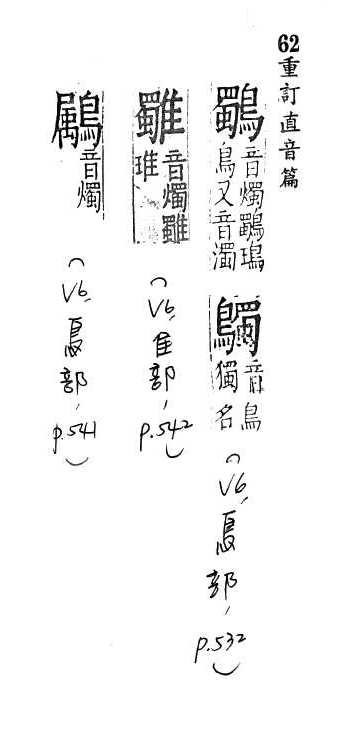 62重訂直音篇
鸀
音燭鸀瑦
鳥又音濁
音獨
鳥名
(V6,鳥部,p.532)
音燭
琟
(V6,隹部,p.542)
音燭
(V6,鳥部,p.541)